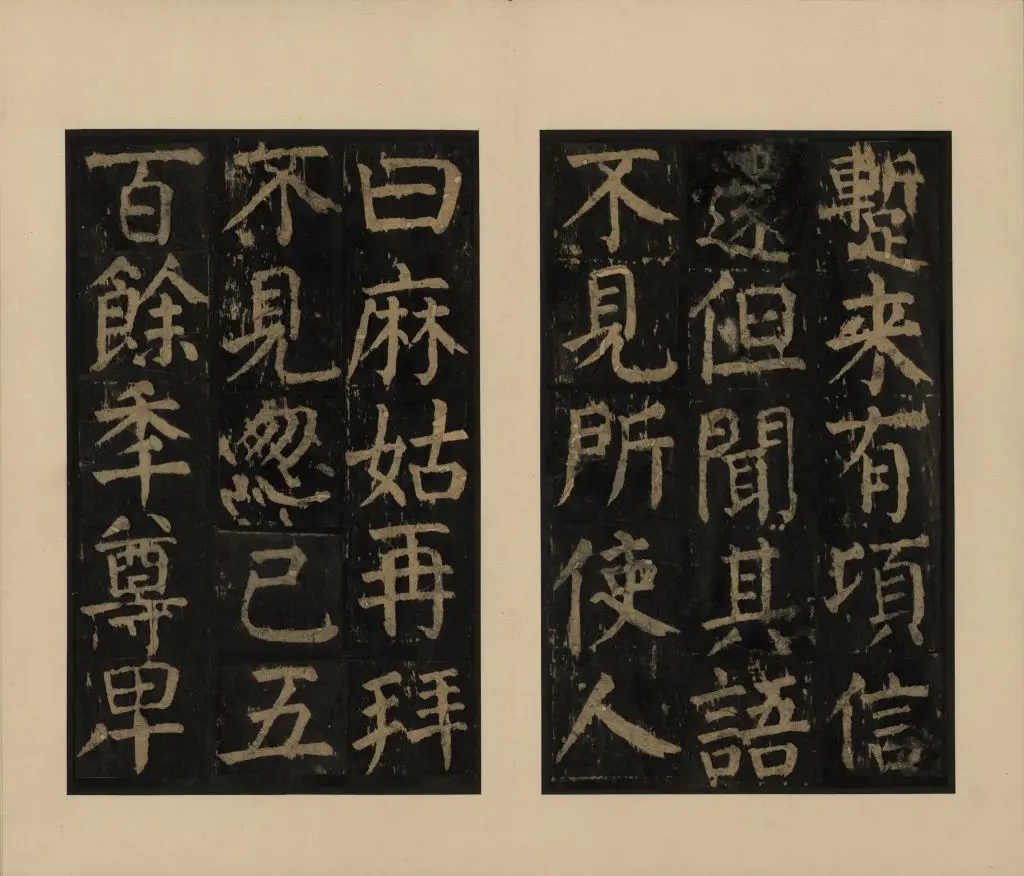 蹔来有頃信
還但聞其語
不見所使人
曰麻姑再拜
不見忽已五
百餘秊尊卑